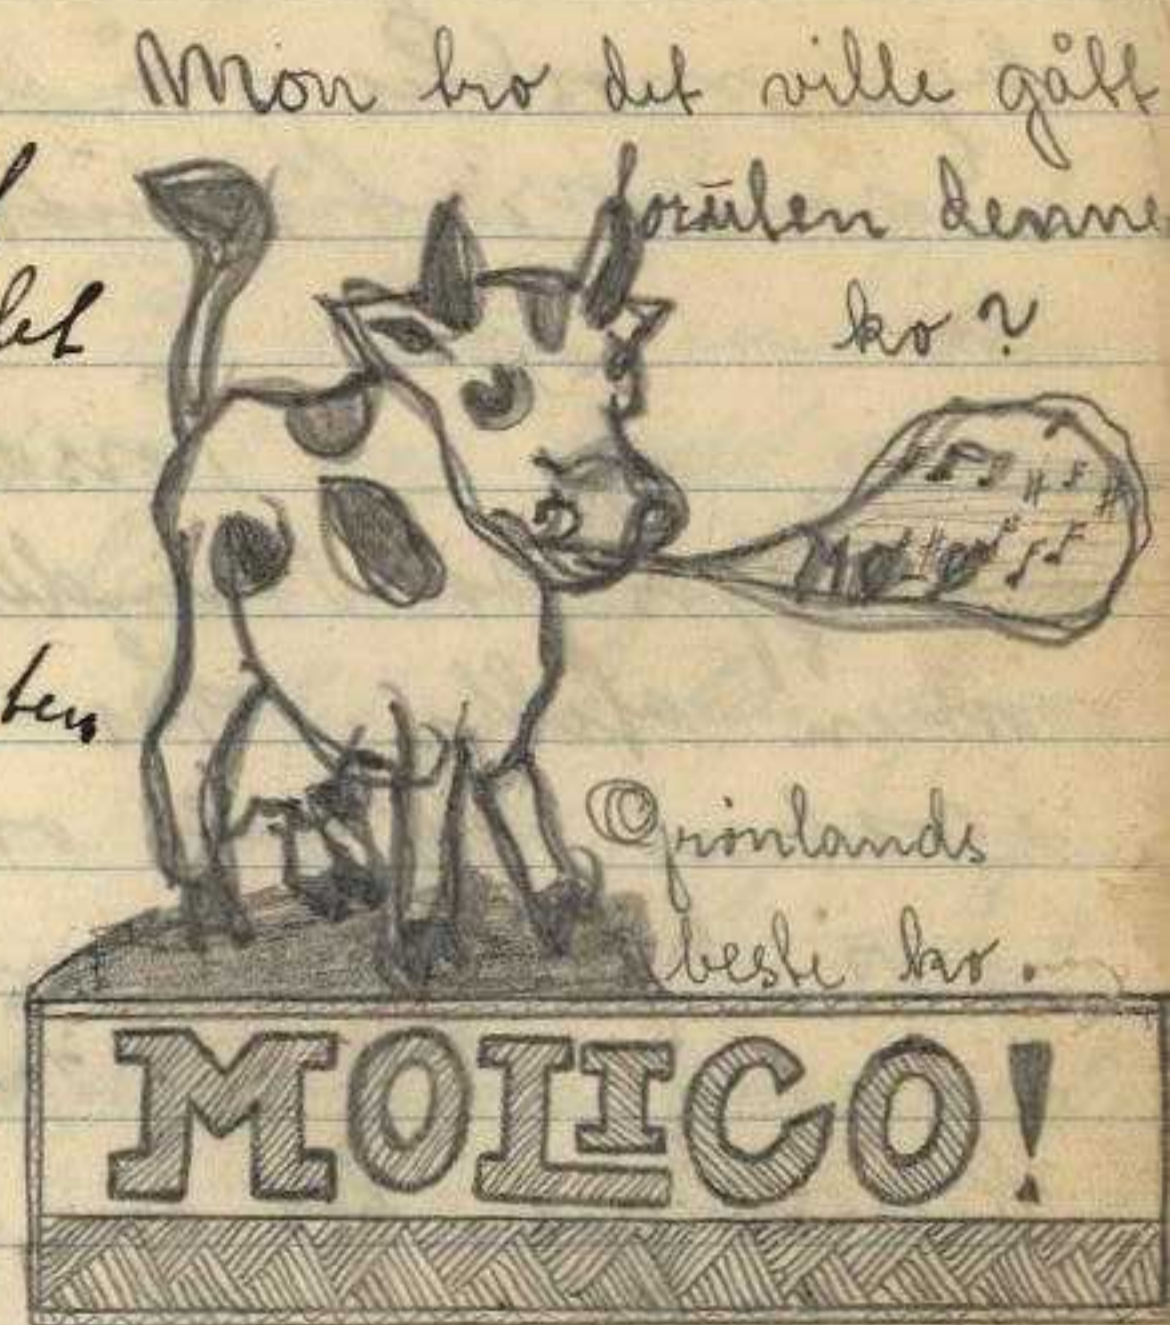 Mon tro det ville gått
forūten denne
ko?
ten,
Grønlands
beste ko.
MOLICO!